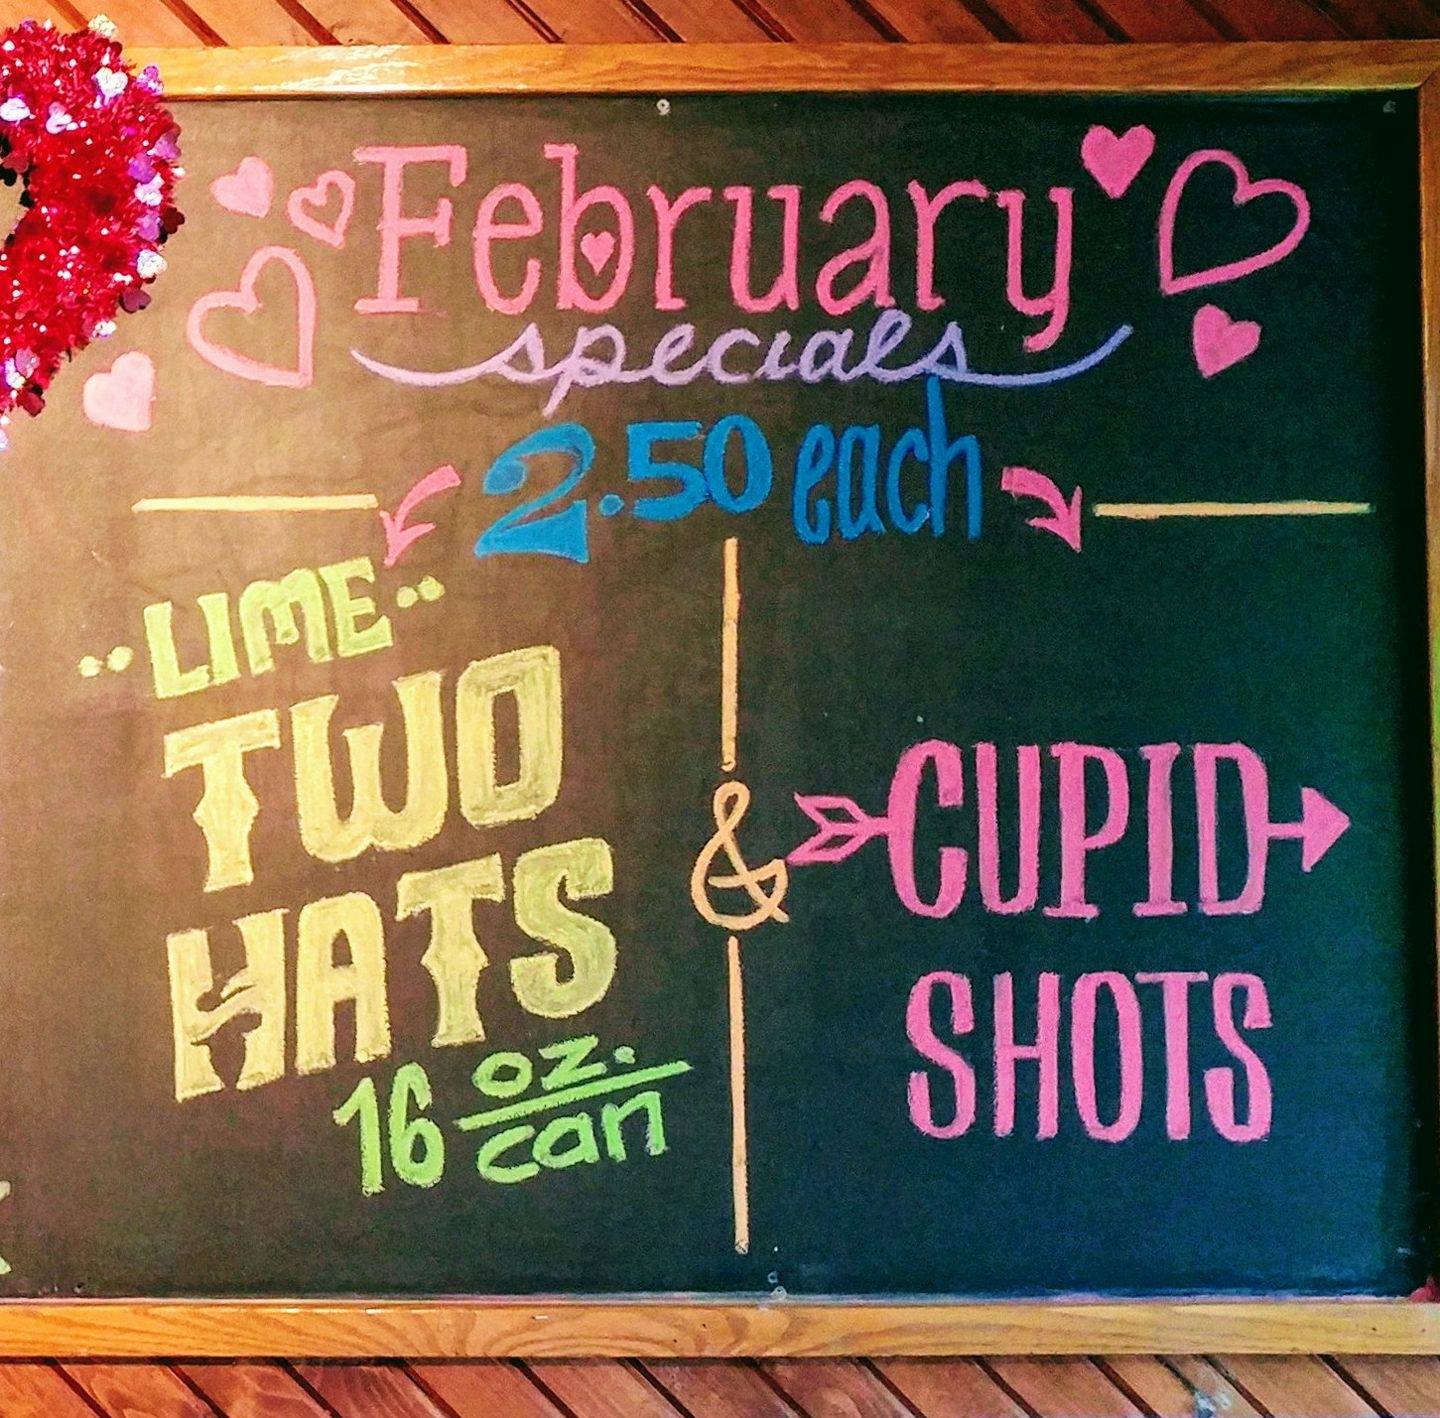 February
specials
2.50 each
LIME
TWO
HATS
16 oz.
can
&
CUPID
SHOTS